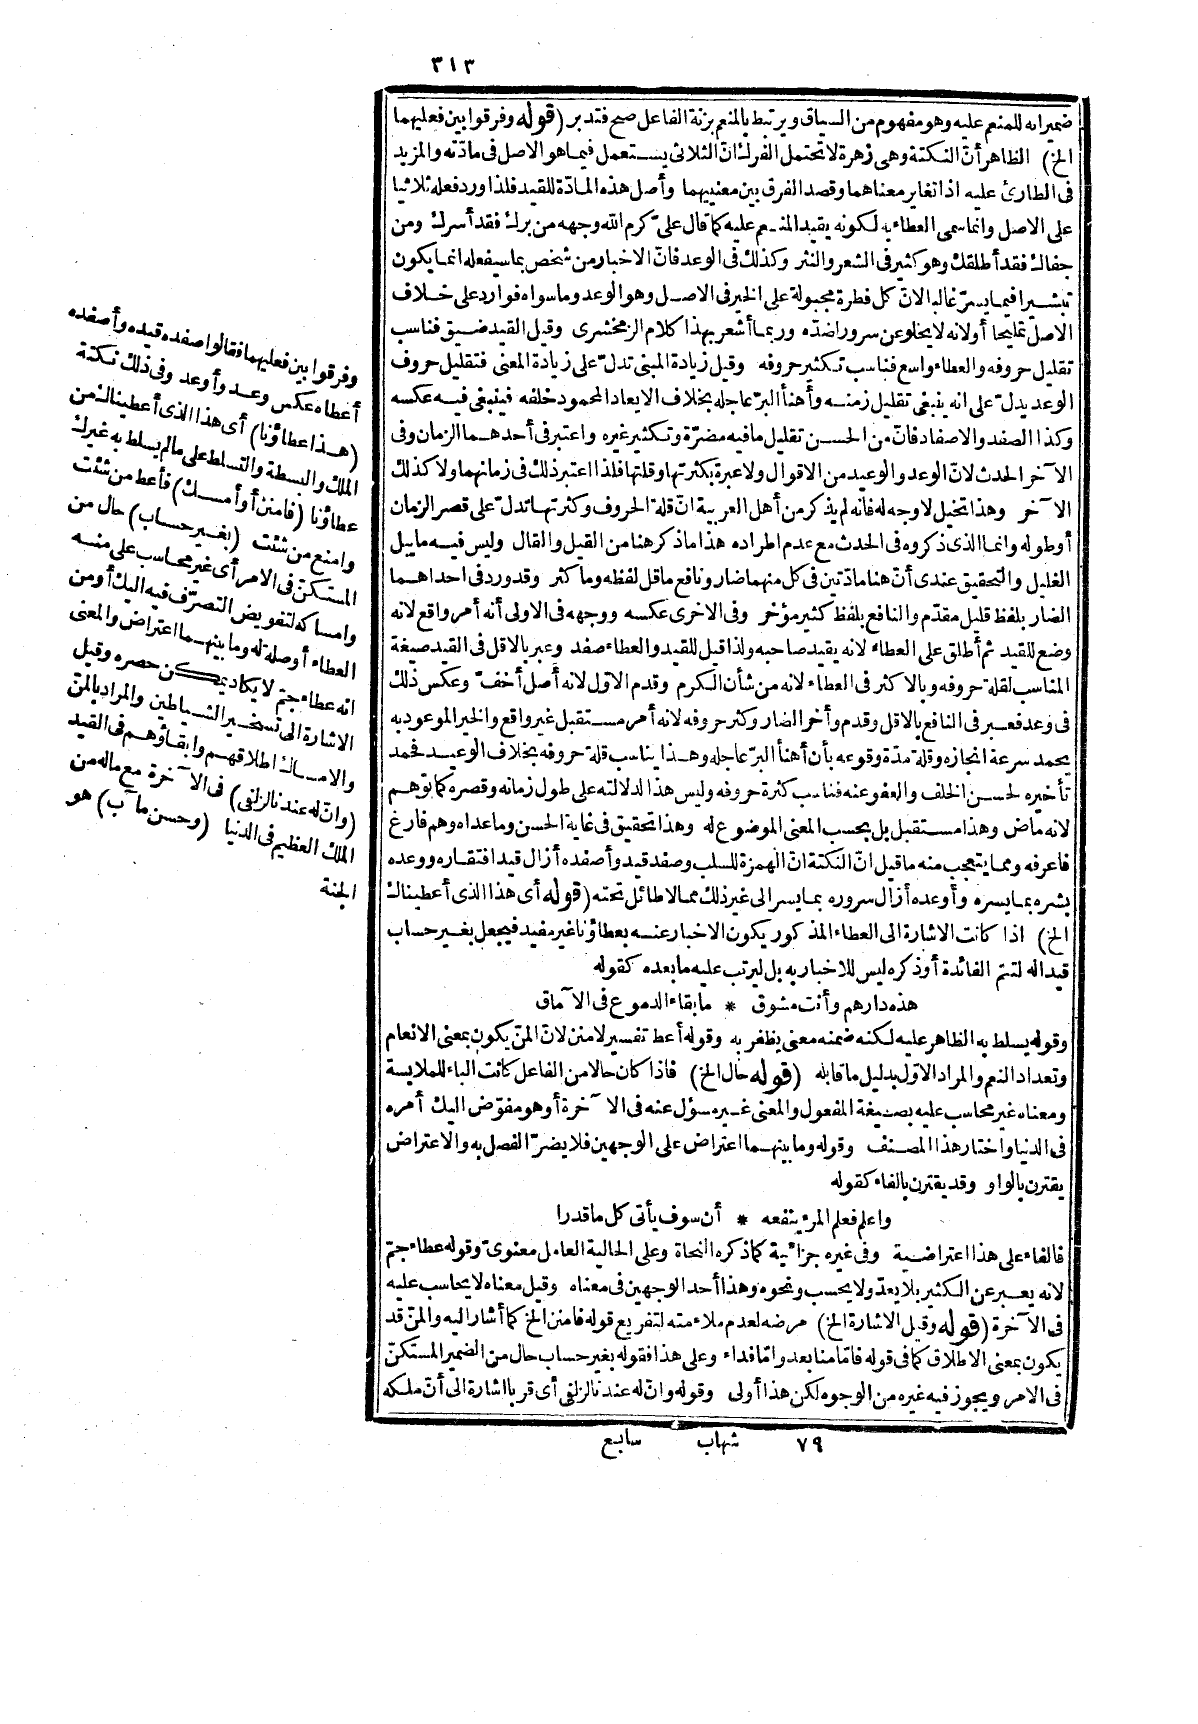 ٣١٣
ضميرانه للمنعم عليه وهو مفهوم من السياق ويرتبط بالمنعم بزنة الفاعل صح فتدبر (قوله وفرقوا بين فعليهما
الخ) الظاهر أنّ النكتة وهى زهرة لا تحتمل الفرك انّ الثلاثى يستعمل فيما هو الاصل فى مادّته والمزيد
فى الطارئ عليه اذا تغاير معناهما وقصد الفرق بين معنييهما وأصل هذه المادّة للقيد فلذا ورد فعله ثلاثيا
على الاصل وانما سمى العطاء به لكونه يقيد المنعم عليه كما قال علىّ كرم الله وجهه من برك فقد أسرك ومن
جفاك فقد أطلقك وهو كثير فى الشعر والنثر وكذلك فى الوعد فانّ الاخبار من شخص بما سيفعله انما يكون
تبشيرا فيما يسرّ غالبا لانّ كل فطرة مجبولة على الخير فى الاصل وهو الوعد وما سواه فوارد على خلاف
الاصل تمليحا أو لانه لا يخلو عن سرور اضدّه وربما أشعر بهذا كلام الزمخشرى وقيل القيد ضيق فناسب
تقليل حروفه والعطاء واسع فناسب تكثير حروفه وقيل زيادة المبنى تدلّ على زيادة المعنى فتقليل حروف
الوعد يدلّ على انه ينبغى تقليل زمنه وأهنأ البرّ عاجله بخلاف الايعاد المحمود خلفه فينبغى فيه عكسه
وكذا الصفد والاصفاد فانّ من الحسن تقليل ما فيه مضرّة وتكثير غيره واعتبر فى أحدهما الزمان وفى
الآخر الحدث لانّ الوعد والوعيد من الاقوال ولا عبرة بكثرتها وقلتها فلذا اعتبر ذلك فى زمانهما ولا كذلك
الآخر وهذا تخيل لا وجه له فانه لم يذكر من أهل العربية انّ قلة الحروف وكثرتها تدلّ على قصر الزمان
أو طوله وانما الذى ذكروه فى الحدث مع عدم اطراده هذا ما ذكر هنا من القيل والقال وليس فيه ما يبل
الغليل والتحقيق عندى أنّ هنا مادّتين فى كل منهما ضار ونافع ما قل لفظه وما كثر وقد ورد فى احداهما
الضار بلفظ قليل مقدّم والنافع بلفظ كثير مؤخر وفى الاخرى عكسه ووجهه فى الاولى أنه أمر واقع لانه
وضع للقيد ثم أطلق على العطاء لانه يقيد صاحبه ولذا قيل للقيد والعطاء صفد وعبر بالاقل فى القيد صيغة
المناسب لقلة حروفه وبالاكثر فى العطاء لانه من شأن الكرم وقدم الاوّل لانه أصل أخف وعكس ذلك
فى وعد فعبر فى النافع بالاقل وقدم وأخر الضار وكثر حروفه لانه أمر مستقبل غير واقع والخير الموعود به
يحمد سرعة انجازه وقلة مدّة وقوعه بأن أهنأ البرّ عاجله وهذا يناسب قلة حروفه بخلاف الوعيد فحمد
تأخيره لحسن الخلف والعفو عنه فناسب كثرة حروفه وليس هذا لدلالته على طول زمانه وقصره كما توهم
لانه ماض وهذا مستقبل بل بحسب المعنى الموضوع له وهذا تحقيق فى غاية الحسن وما عداه وهم فارغ
فاعرفه ومما يتعجب منه ما قيل انّ النكتة انّ الهمزة للسلب وصفد قيد وأصفده أزال قيد افتقاره ووعده
بشره بما يسره وأوعده أزال سروره بما يسر الى غير ذلك مما لا طائل تحته (قوله أى هذا الذى أعطيناك
الخ) اذا كانت الاشارة الى العطاء المذكور يكون الاخبار عنه بعطاؤنا غير مفيد فيجعل بغير حساب
قيدا له لتتم الفائدة أو ذكره ليس للاخبار به بل ليرتب عليه ما بعده كقوله
هذه دارهم وأنت مشوق * ما بقاء الدموع فى الآماق
وقوله يسلط به الظاهر عليه لكنه ضمنه معنى يظفر به وقوله أعط تفسير لامنن لانّ المنّ يكون بمعنى الانعام
وتعداد النعم والمراد الاوّل بدليل ما قابله (قوله حال الخ) فاذا كان حالا من الفاعل كانت الباء للملابسة
ومعناه غير محاسب عليه بصيغة المفعول والمعنى غير مسؤل عنه فى الآخرة أو هو مفوّض اليك أمره
فى الدنيا واختار هذا المصنف وقوله وما بينهما اعتراض على الوجهين فلا يضرّ الفصل به والاعتراض
يقترن بالواو وقد يقترن بالفاء كقوله
واعلم فعلم المرء ينفعه * أن سوف يأتى كل ما قدرا
فالفاء على هذا اعتراضية وفى غيره جزائية كما ذكره النحاة وعلى الحالية العامل معنوىّ وقوله عطاء جمّ
لانه يعبر عن الكثير بلا يعدّ ولا يحسب ونحوه وهذا أحد الوجهين فى معناه وقيل معناه لا يحاسب عليه
فى الآخرة (قوله وقيل الاشارة الخ) مرضه لعدم ملاءمته لتفريع قوله فامنن الخ كما أشار اليه والمنّ قد
يكون بمعنى الاطلاق كما فى قوله فامّا منا بعد وامّا فداء وعلى هذا فقوله بغير حساب حال من الضمير المستكنّ
فى الامر ويجوز فيه غيره من الوجوه لكن هذا أولى وقوله وانّ له عندنا لزلفى أى قربا اشارة الى أنّ ملكه
٧٩ شهاب سابع
وفرقوا بين فعليهما فقالوا صفده قيده وأصفده
أعطاه عكس وعد وأوعد وفى ذلك نكتة
(هذا عطاؤنا) أى هذا الذى أعطيناك من
الملك والبسطة والتسلط على ما لم يسلط به غيرك
عطاؤنا (فامنن أو أمسك) فأعط من شئت
وامنع من شئت (بغير حساب) حال من
المستكن فى الامر أى غير محاسب على منه
وامساكه لتفويض التصرّف فيه اليك أو من
العطاء أو صلة له وما بينهما اعتراض والمعنى
انه عطاء جمّ لا يكاد يمكن حصره وقيل
الاشارة الى تسخير الشياطين والمراد بالمنّ
والامساك اطلاقهم وابقاؤهم فى القيد
(وانّ له عندنا لزلفى) فى الآخرة مع ماله من
الملك العظيم فى الدنيا (وحسن مآب) هو
الجنة